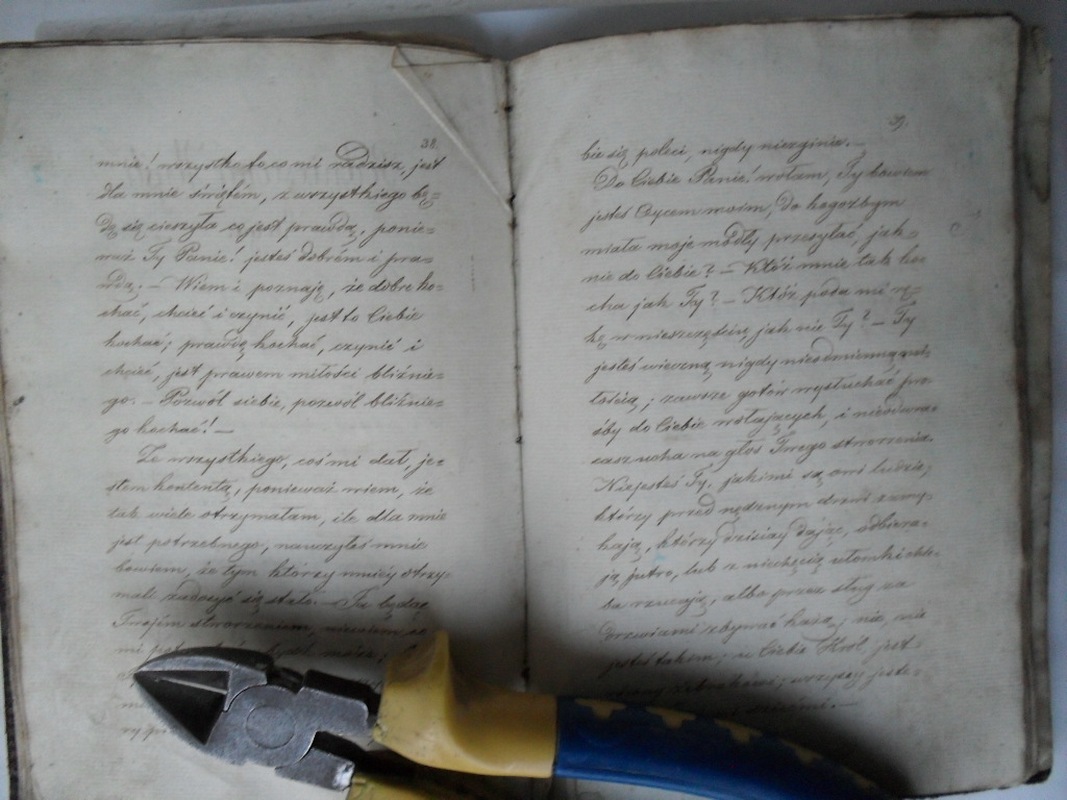 38.
mnie! wszystko to, co mi radzisz, jest
dla mnie świętém, z wszystkiego bę=
dę się cieszyła co jest prawdą, ponie=
waż Ty Panie! jesteś dobrém i pra=
wdą. — Wiem i poznaję, że dobre ko=
chać, chcieć i czynić, jest to Ciebie
kochać; prawdę kochać, czynić i
chcieć, jest prawem miłości bliźnie=
go. — Pozwól siebie, pozwól bliźnie=
go kochać! —
Ze wszystkiego, coś mi dał, je=
stem kontentą, ponieważ wiem, że
tak wiele otrzymałam, ile dla mnie
jest potrzebnego, nauczyłeś mnie
bowiem, że tym którzy mniéj otrzy=
mali zadosyć się stało. — Ja będąc
Twojém stworzeniem,
mi
ry
39.
bie się poleci, nigdy niezginie. —
Do Ciebie Panie! wołam, Ty bowiem
jesteś Ojcem moim, do kogożbym
miała moje modły przesyłać jak=
nie do Ciebie? — Któż mnie tak ko=
cha jak Ty? — Któż poda mi rę=
kę w nieszczęściu, jak nie Ty? — Ty
jesteś wieczną, nigdy nieodmienną mi=
łością; zawsze gotów wysłuchać pro=
śby do Ciebie wołających, i
ucha na głos Twego stworzenia.
Niejesteś Ty, jakimi są oni ludzie,
którzy przed nędznym drzwi zamy=
kają, którzy dzisiaj dając, odbiera=
ją jutro, lub z niechęcią ułomki chle=
ba rzucają, albo przez sług za
drzwiami zbywać każą; nie, nie
jesteś takim; u Ciebie stół jest
wszyscy jeste=